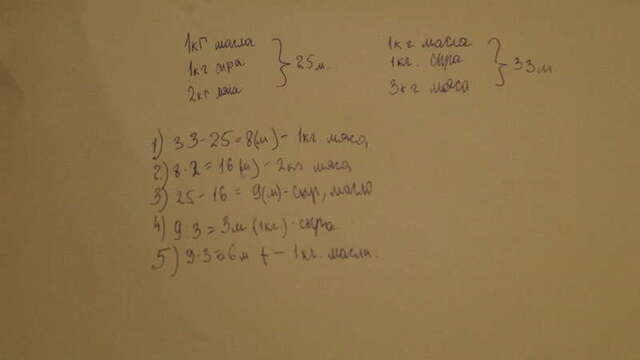 1кг масла
1кг сыра } 25м.
2кг мяса
1кг масла
1кг. сыра } 33м
3кг мяса
1) 33-25=8(м) - 1кг. мяса,
2) 8·2=16(м) - 2кг мяса,
3) 25-16=9(м) - сыр, масло
4) 9:3=3м (1кг) - сыра
5) 9-3=6м - 1кг. масла.